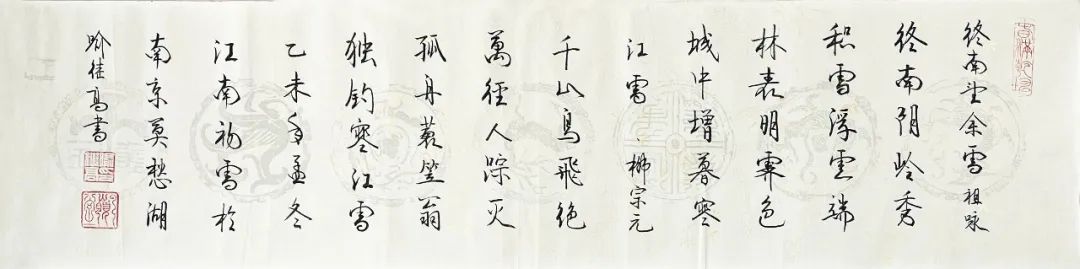 终南望余雪 祖咏
终南阴岭秀
积雪浮雲端
林表明霁色
城中增暮寒
江雪 柳宗元
千山鳥飛绝
萬徑人踪灭
孤舟蓑笠翁
独钓寒江雪
乙未年孟冬
江南初雪於
南京莫愁湖
高書